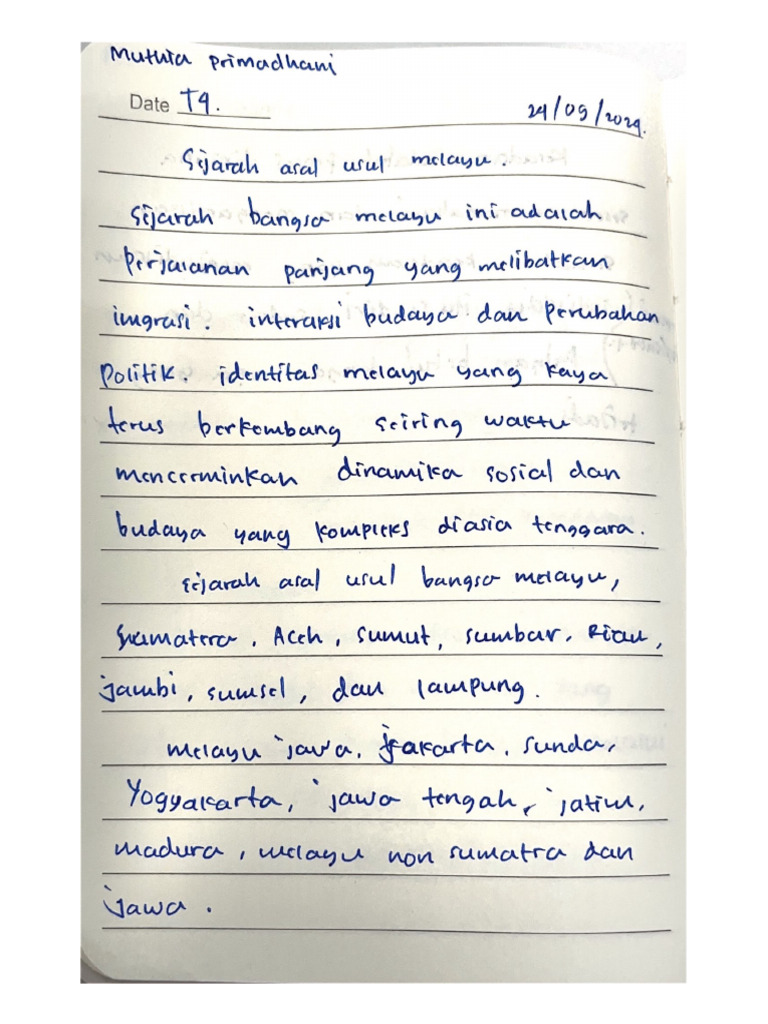 Muthia Primadhani
Date T9.
24/09/2024.
Sejarah asal usul melayu.
Sejarah bangsa melayu ini adalah
Perjalanan panjang yang melibatkan
imgrasi. interaksi budaya dan Perubahan
Politik. identitas melayu yang kaya
terus berkembang seiring waktu
mencerminkan dinamika sosial dan
budaya yang kompleks diasia tenggara.
sejarah asal usul bangsa melayu,
Sumatera, Aceh, sumut, sumbar, Riau,
jambi, sumsel, dan lampung.
melayu jawa, jakarta, sunda,
Yogyakarta, jawa tengah, jatim,
madura, melayu non sumatra dan
jawa.